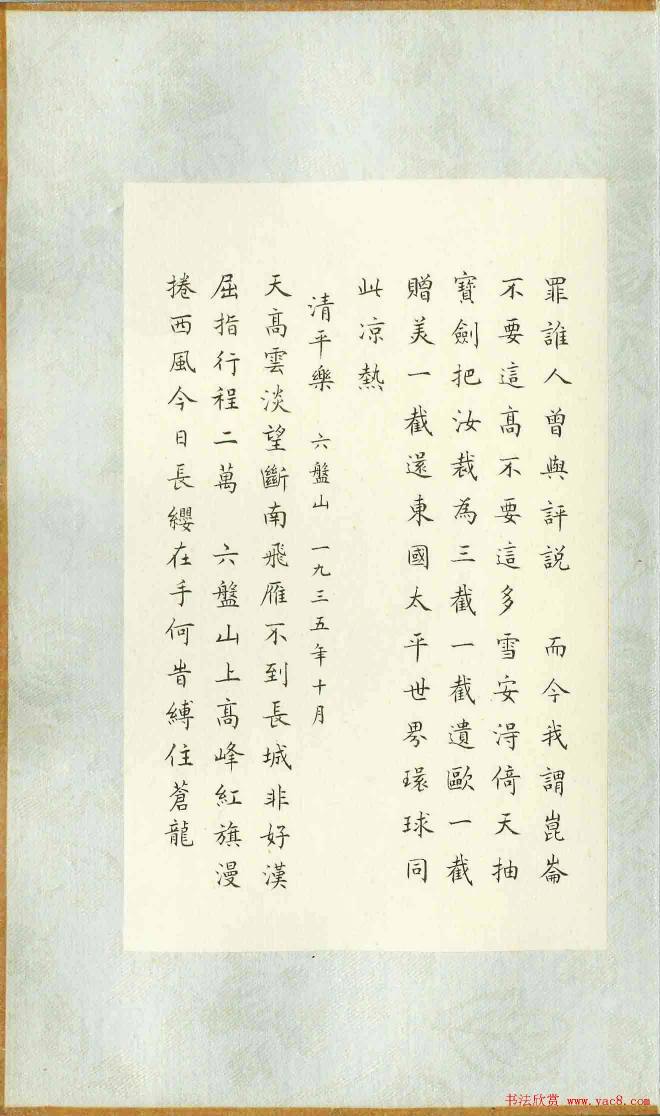 罪誰人曾與評說 而今我謂崑崙
不要這高不要這多雪安得倚天抽
寶劍把汝裁為三截一截遺歐一截
贈美一截還東國太平世界環球同
此凉熱
清平樂 六盤山 一九三五年十月
天高雲淡望斷南飛雁不到長城非好漢
屈指行程二萬 六盤山上高峰紅旗漫
捲西風今日長纓在手何時縛住蒼龍
书法欣赏 www.yac8.com